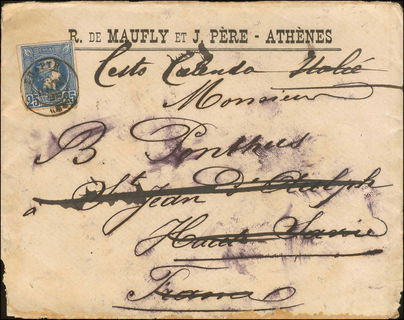 R. DE MAUFLY ET J. PÈRE - ATHÈNES
25 25
Cesto Calende Italie
Monsieur
B. Ponthus
à St Jean d'Aulph
Haute Savoie
France